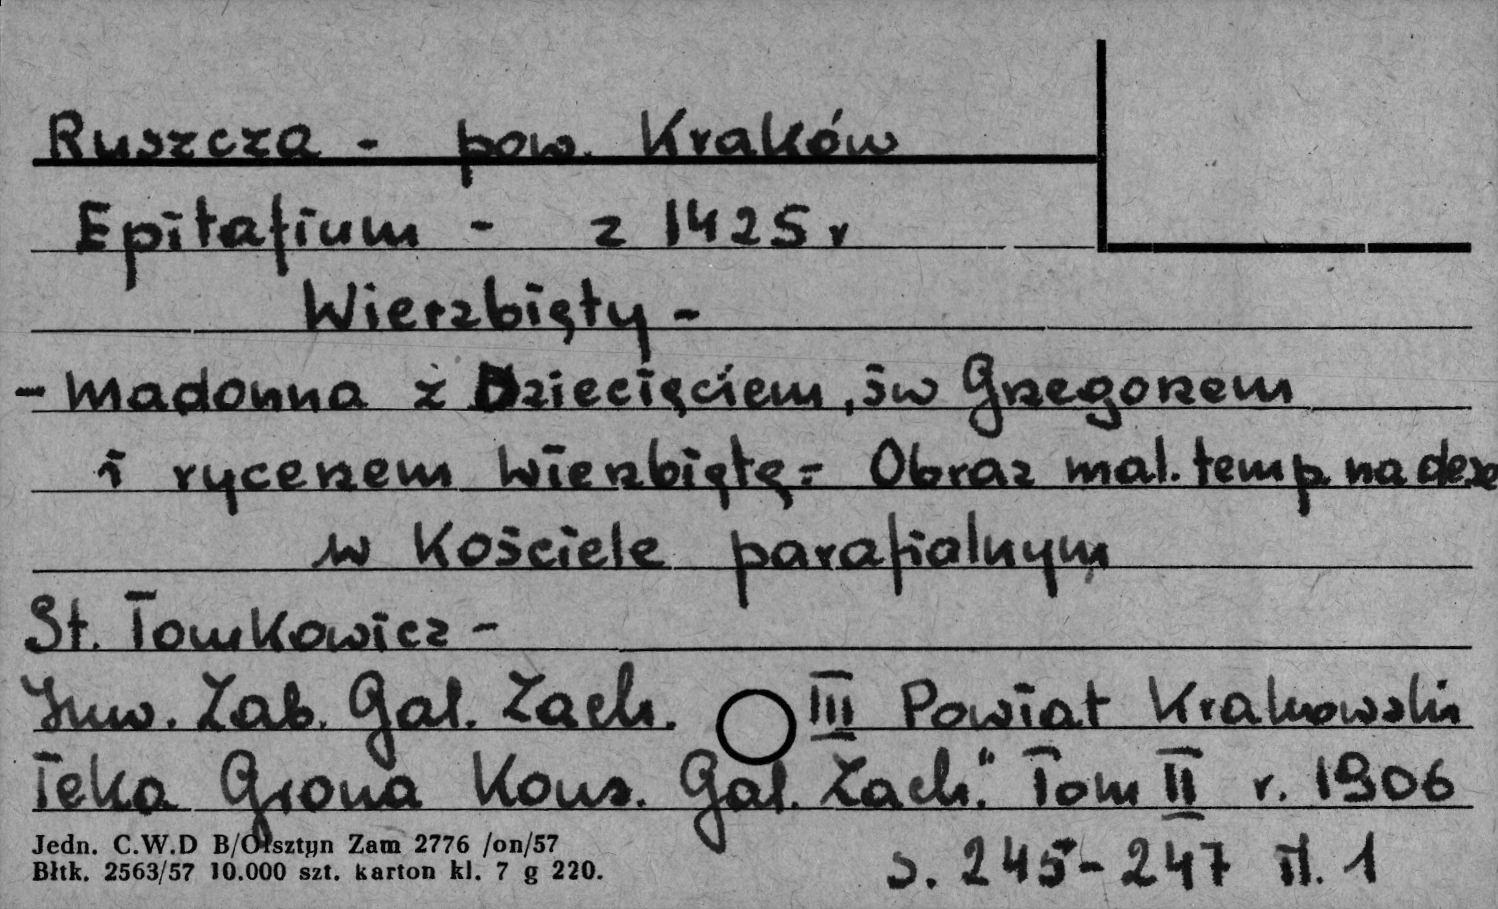 Ruszcza - pow. Kraków
Epitafium - z 1425 r
Wierzbięty -
- Madonna z Dziecięciem, św Grzegorzem
i rycerzem Wierzbiętą - Obraz mal. temp na desce
w Kościele parafialnym
St. Tomkowicz -
Inw. Zab. Gal. Zach. III Powiat Krakowski
Teka Grona Kons. Gal. Zach." Tom II r. 1906
s. 245-247 il. 1
Jedn. C.W.D B/Olsztyn Zam 2776 /on/57
Błtk. 2563/57 10.000 szt. karton kl. 7 g 220.